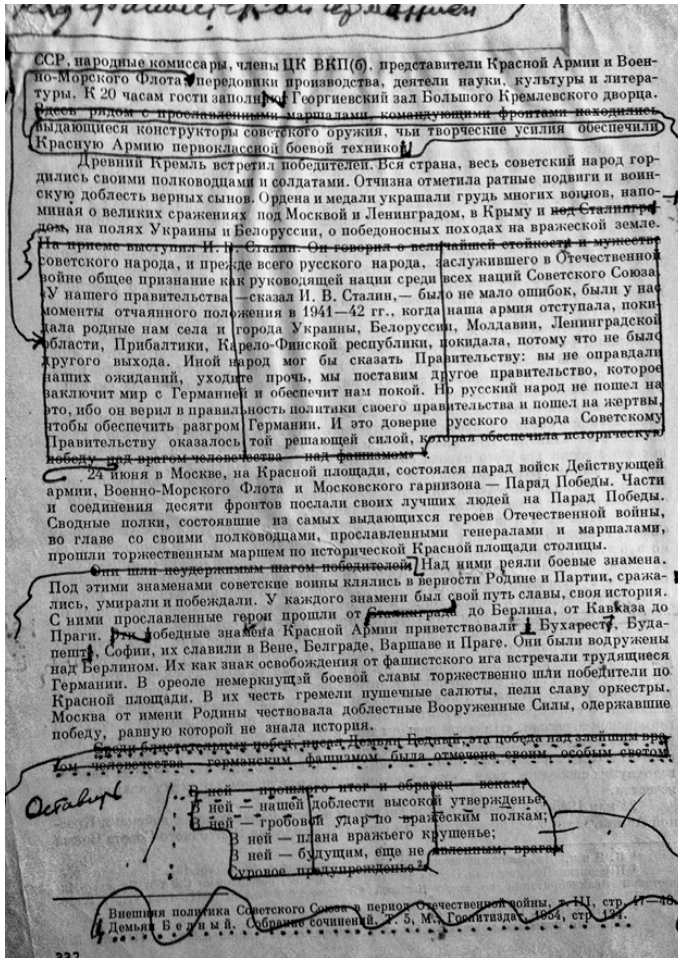 ССР, народные комиссары, члены ЦК ВКП(б), представители Красной Армии и Воен-
но-Морского Флота, передовики производства, деятели науки, культуры и литера-
туры. К 20 часам гости заполнили Георгиевский зал Большого Кремлевского дворца.
Здесь рядом с прославленными маршалами, командующими фронтами находились
выдающиеся конструкторы советского оружия, чьи творческие усилия обеспечили
Красную Армию первоклассной боевой техникой.
Древний Кремль встретил победителей. Вся страна, весь советский народ гор-
дились своими полководцами и солдатами. Отчизна отметила ратные подвиги и воин-
скую доблесть верных сынов. Ордена и медали украшали грудь многих воинов, напо-
миная о великих сражениях под Москвой и Ленинградом, в Крыму и под Сталингра-
дом, на полях Украины и Белоруссии, о победоносных походах на вражеской земле.
На приеме выступил И. В. Сталин. Он говорил о величайшей стойкости и мужестве
советского народа, и прежде всего русского народа, заслужившего в Отечественной
войне общее признание как руководящей нации среди всех наций Советского Союза.
«У нашего правительства — сказал И. В. Сталин,— было не мало ошибок, были у нас
моменты отчаянного положения в 1941—42 гг., когда наша армия отступала, поки-
дала родные нам села и города Украины, Белоруссии, Молдавии, Ленинградской
области, Прибалтики, Карело-Финской республики, покидала, потому что не было
другого выхода. Иной народ мог бы сказать Правительству: вы не оправдали
наших ожиданий, уходите прочь, мы поставим другое правительство, которое
заключит мир с Германией и обеспечит нам покой. Но русский народ не пошел на
это, ибо он верил в правильность политики своего правительства и пошел на жертвы,
чтобы обеспечить разгром Германии. И это доверие русского народа Советскому
Правительству оказалось той решающей силой, которая обеспечила историческую
победу над врагом человечества — над фашизмом»
24 июня в Москве, на Красной площади, состоялся парад войск Действующей
армии, Военно-Морского Флота и Московского гарнизона — Парад Победы. Части
и соединения десяти фронтов послали своих лучших людей на Парад Победы.
Сводные полки, состоявшие из самых выдающихся героев Отечественной войны,
во главе со своими полководцами, прославленными генералами и маршалами,
прошли торжественным маршем по исторической Красной площади столицы.
Они шли неудержимым шагом победителей. Над ними реяли боевые знамена.
Под этими знаменами советские воины клялись в верности Родине и Партии, сража-
лись, умирали и побеждали. У каждого знамени был свой путь славы, своя история.
С ними прославленные герои прошли от Сталинграда до Берлина, от Кавказа до
Праги. Эти победные знамена Красной Армии приветствовали в Бухаресте, Буда-
пеште, Софии, их славили в Вене, Белграде, Варшаве и Праге. Они были водружены
над Берлином. Их как знак освобождения от фашистского ига встречали трудящиеся
Германии. В ореоле немеркнущэй боевой славы торжественно шли победители по
Красной площади. В их честь гремели пушечные салюты, пели славу оркестры.
Москва от имени Родины чествовала доблестные Вооруженные Силы, одержавшие
победу, равную которой не знала история.
Среди блистательных побед, писал Демьян Бедный, эта победа над злейшим вра-
гом человечества — германским фашизмом была отмечена своим, особым светом
Оставить
В ней — прошлого итог и образец — векам;
В ней — нашей доблести высокой утвержденье,
В ней — гробовой удар по вражеским полкам;
В ней — плана вражьего крушенье;
В ней — будущим, еще не явленным, врагам
Суровое предупрежденье
Внешняя политика Советского Союза в период Отечественной войны, т. III, стр. 47—48.
Демьян Бедный. Собрание сочинений, Т. 5, М., Гослитиздат, 1954, стр. 124.
332